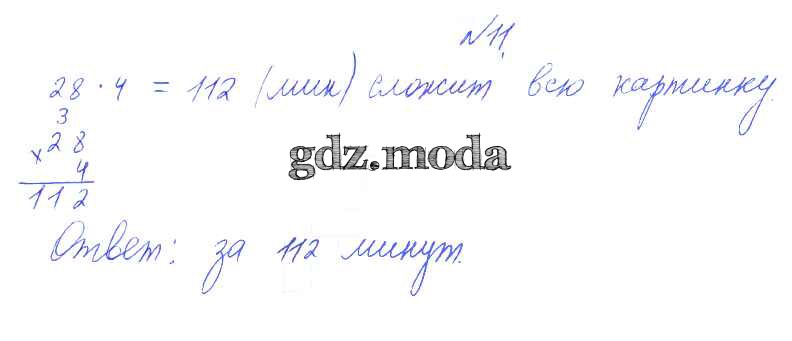 №11.
28 · 4 = 112 (мин) сложит всю картинку.
3
× 28
4
112
gdz.moda
Ответ: за 112 минут.